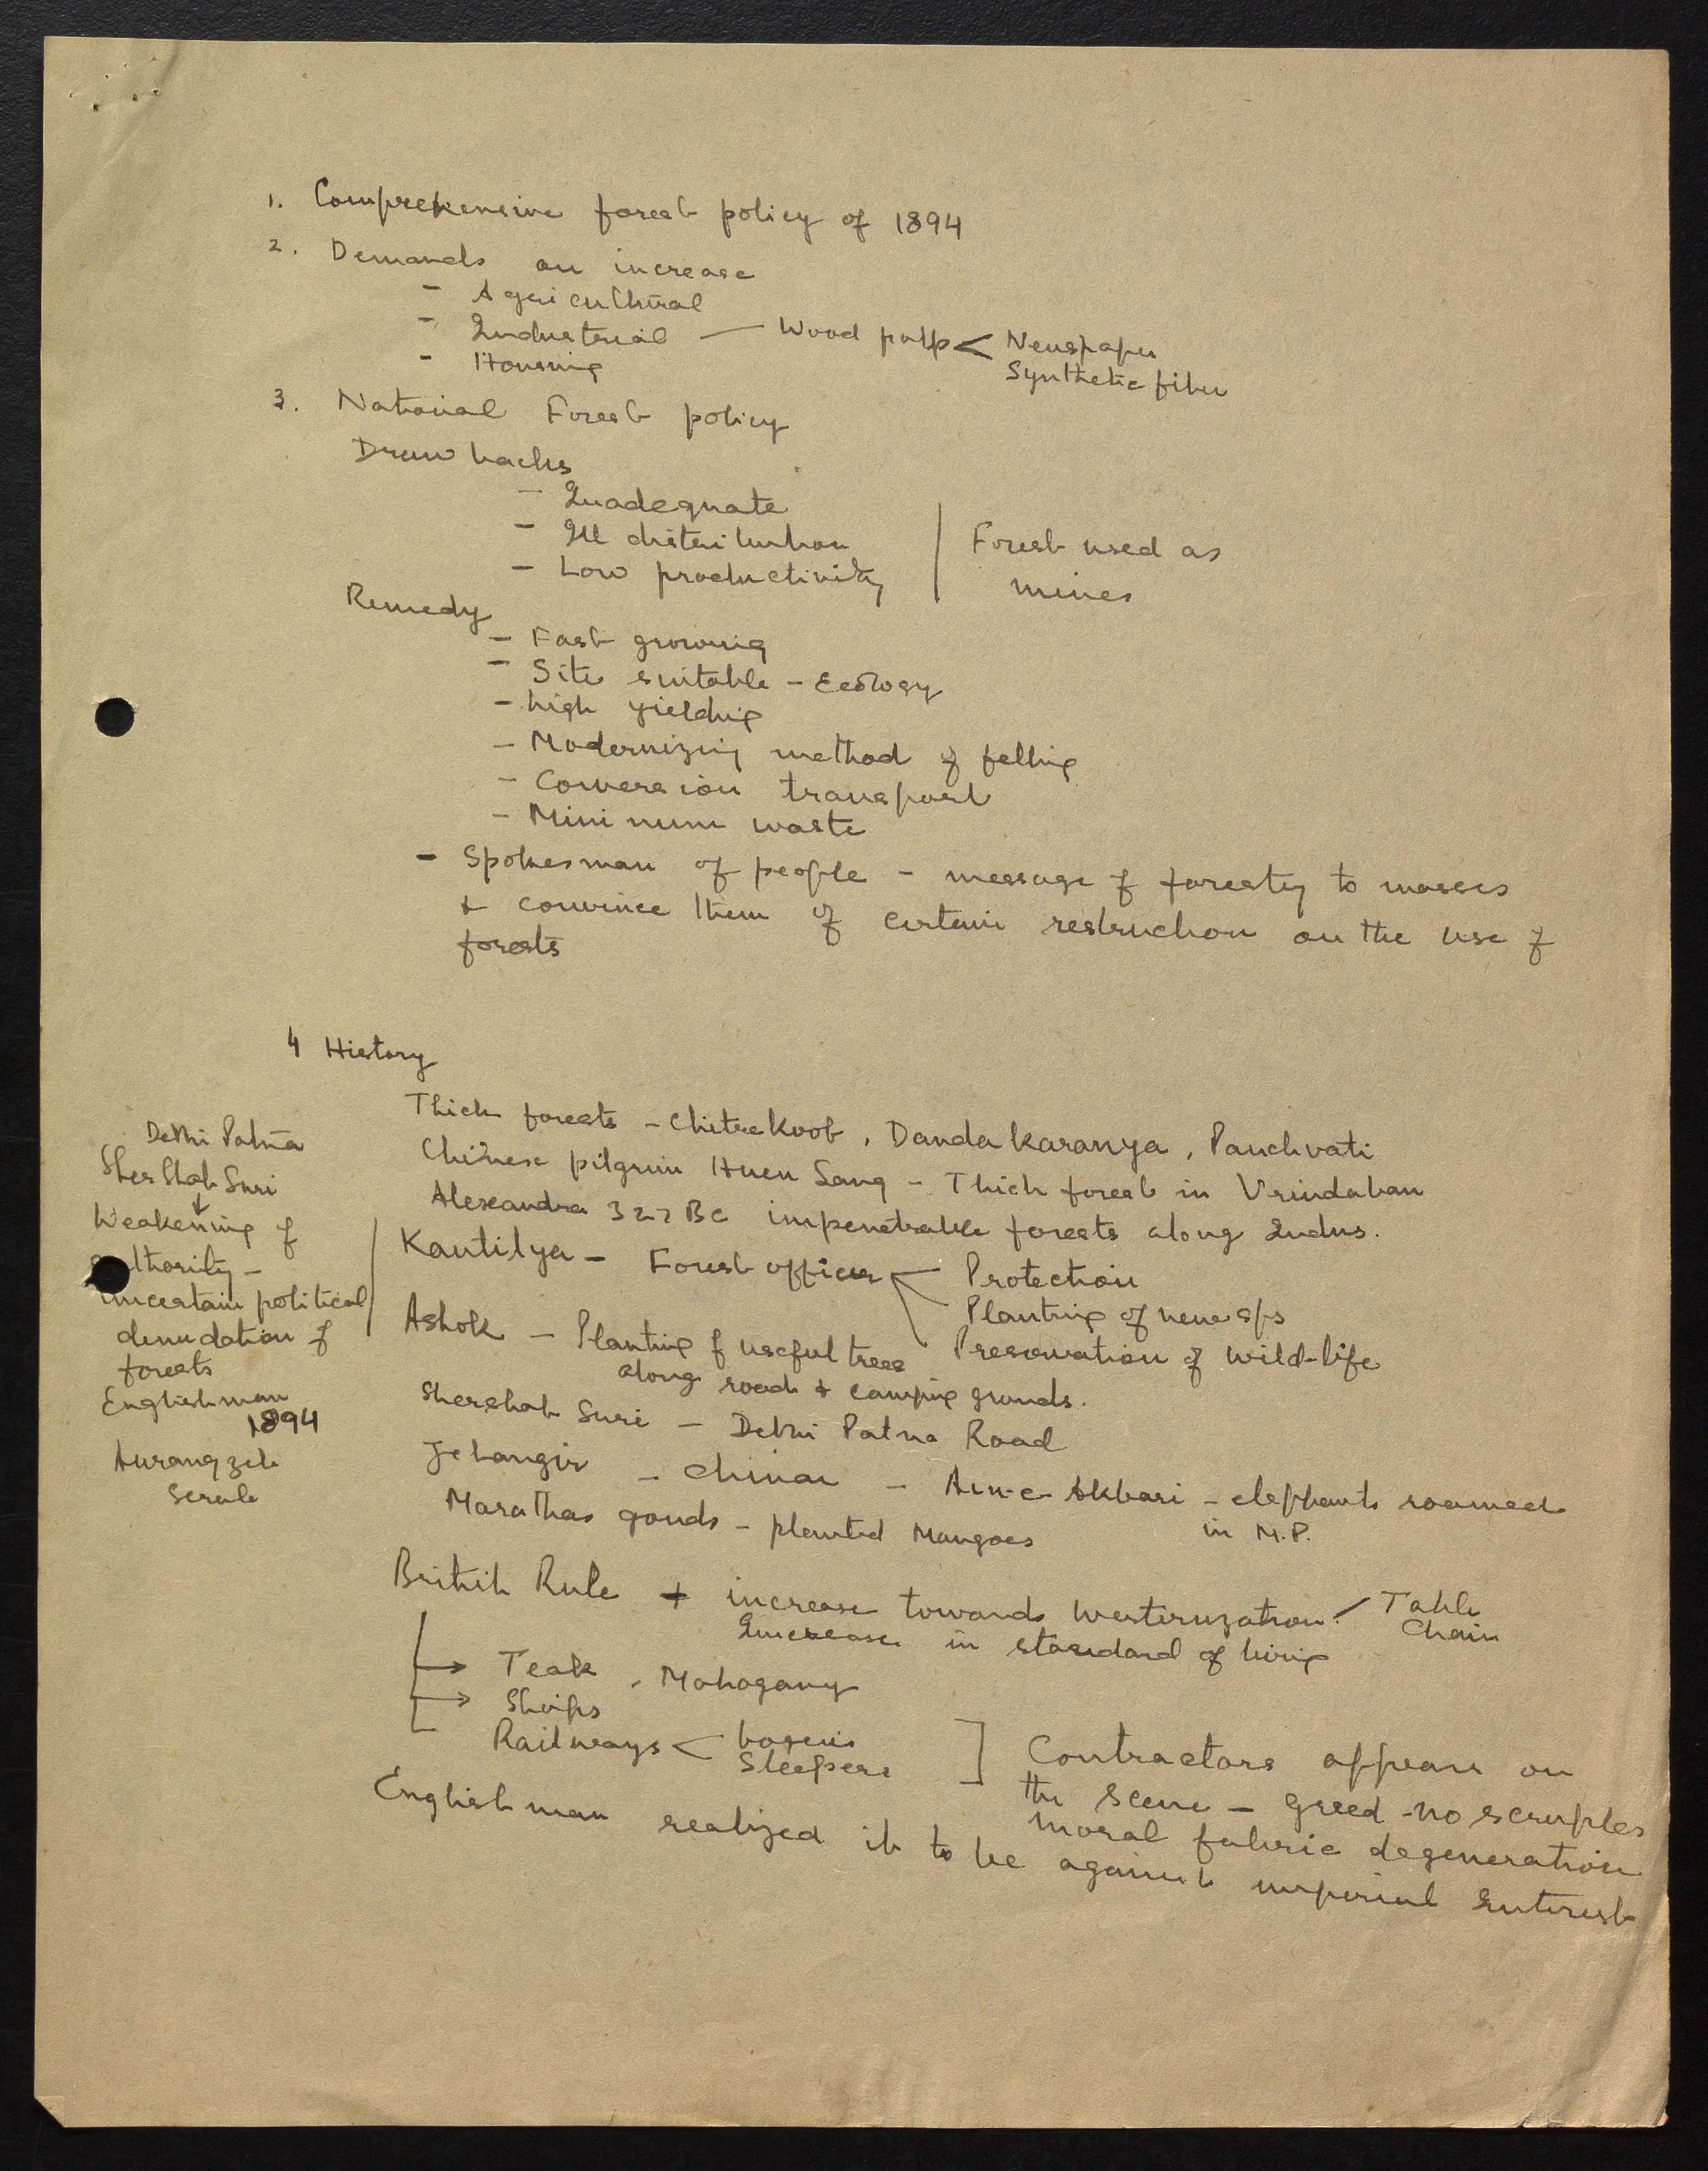 1. Comprehensive forest policy of 1894
2. Demands on increase
- Agricultural
- Industrial — Wood pulp < Newspaper
Synthetic fiber
- Housing
3. National Forest policy
Draw backs
- Inadequate
- Ill distribution
- Low productivity
Forest used as
mines
Remedy
- Fast growing
- Site suitable - Ecology
- high yielding
- Modernizing method of felling
- Conversion transport
- Minimum waste
- Spokesman of people - message of forestry to masses
& convince them of certain restruction on the use of
forests
4 History
Thick forests - Chitrakoot, Dandakaranya, Panchvati
Chinese pilgrim Huen Sang - Thick forest in Vrindaban
Alexandra 327 BC impenetrable forests along Indus.
Kautilya - Forest officer
Protection
Planting of new sps
Preservation of wild-life
Ashok - Planting of useful trees
along road & camping grounds.
Shershah Suri - Delhi Patna Road
Jehangir - Chinar - Ain-e-Akbari - elephants roamed
in M.P.
Marathas gonds - planted Mangoes
Delhi Patna
Sher Shah Suri
↓
Weakening of
authority -
uncertain political
denudation of
forests
Englishman
1894
Aurangzeb
British Rule + increase towards Westernization / Table
Chair
Increase in standard of living
→ Teak, Mahogany
→ Ships
Railways < Sleepers
Contractors appear on
the scene - greed - no scruples
moral fabric degeneration
Englishman realized it to be against imperial interest